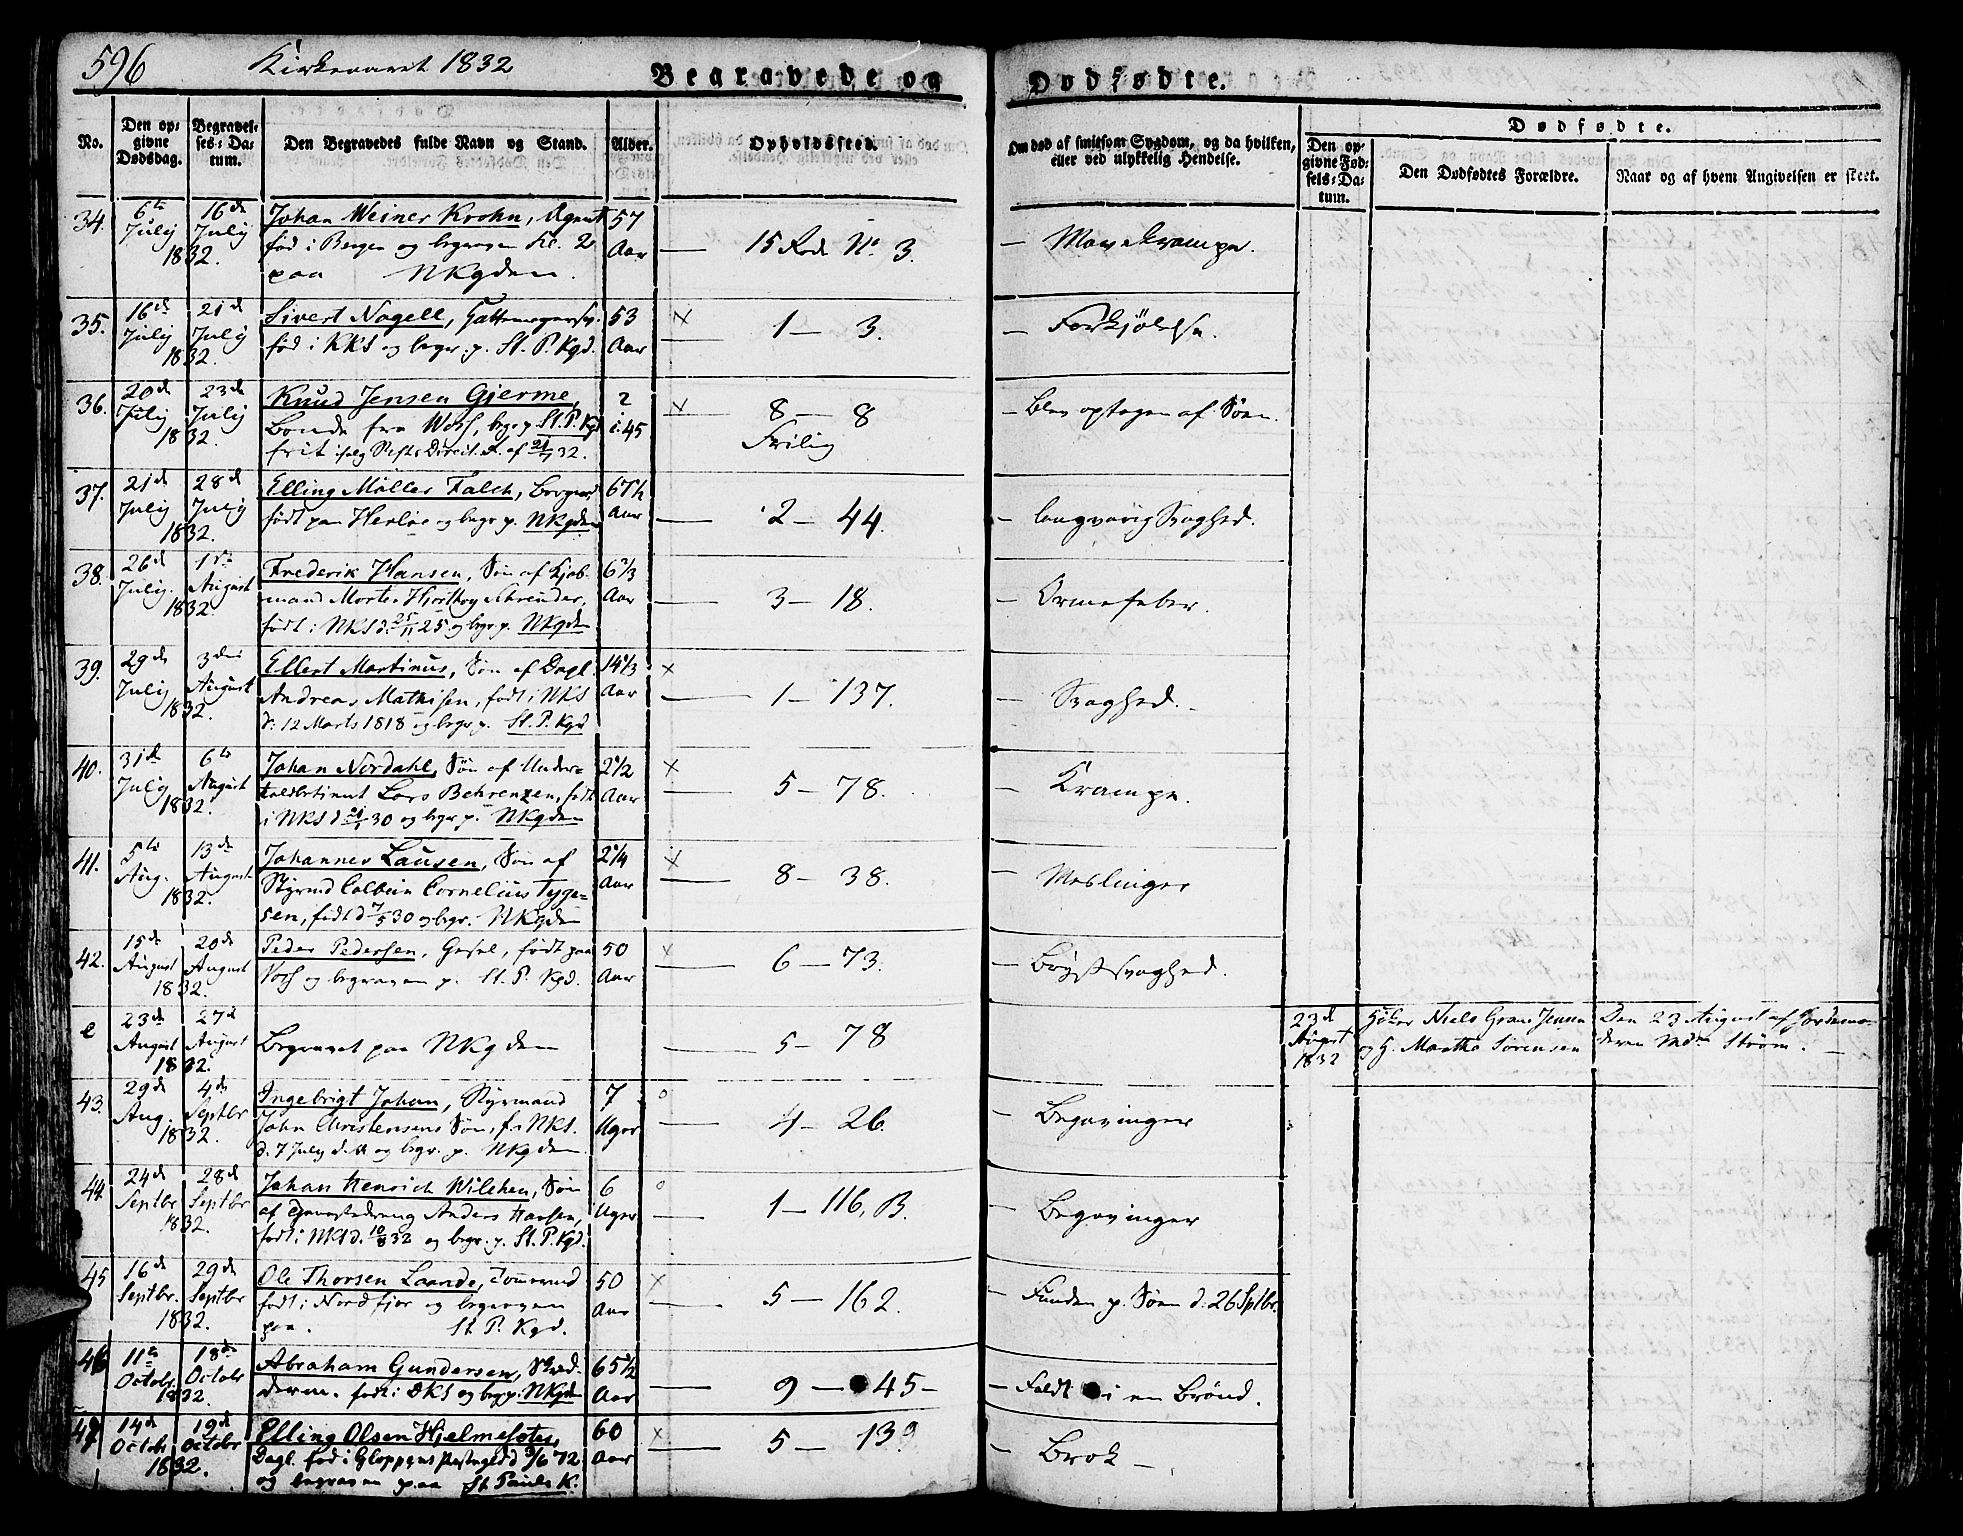 596 Kirkeaaret 1832 Begravede og Dødfødte.
No. Den opgivne Dødsdag. Begravelses-Datum. Den Begravedes fulde Navn og Stand. Alder. Opholdssted. Om død af smitsom Sygdom, og da hvilken, eller ved ulykkelig Hendelse.
Dødfødte.
Den opgivne Fødsels-Datum. Den Dødfødtes Forældre. Naar og af hvem Angivelsen er skeet.
34. 6te July 1832. 16de July Johan Weiner Krohn, Agent 57 Aar 15 Rode No 3. Mavekrampe.
fød i Bergen og begraven Kl. 2
paa NKgden.
35. 16de July 1832. 21de July Sivert Nagell, 53 Aar 1 — 3. Forkjølelse.
fød i KKS og begr. p. St. P. Kgd.
36. 20de July 1832. 23de July Knud Jensen Gjerme, 2 i 45 8 — 8 Frilig Blev optagen af Søen.
Bonde fra Voss, begr. p. St. P. Kgd
frit ifølg Stifts Direct. R. af 21/7 32.
37. 21de July 1832. 28de July Elling Møller Falch, Borger, 67½ Aar 2 — 44. langvarig Svaghed.
født paa Herløe og begr. p. NKgden
38. 26de July 1832. 1ste August Frederik Hansen, Søn af Kjøb- 6⅔ Aar 3 — 18. Ormefeber.
mand Morten Hjortboy Schreuder,
født i NKS d. 25/11 25 og begr. p. NKgden
39. 29de July 1832. 3die August Ellert Martinus, Søn af Dagl. 14⅓ Aar 1 — 137. Svaghed.
Andreas Mathisen, født i NKS
d: 12 Marts 1818 og begr. p. St. P. Kgd
40. 31de July 1832. 6te August Johan Nordahl, Søn af Under- 2½ Aar 5 — 78. Krampe.
toldbetient Lars Behrenzen, født
i NKS d 30 og begr. p. NKgden
41. 5te Aug. 1832. 13de August Johannes Lausen, Søn af 2¼ Aar 8 — 38. Meslinger
Styrmd Colbein Cornelius Tyge-
sen, født d 7/5 30 og begr. NKgden
42. 15de August 1832. 20de August Peder Pedersen, Gesel, født paa 50 Aar 6 — 73. Brystsvaghed.
Voss og begraven p. St. P. Kgd.
e 23de August 1832. 27de August Begravet paa NKgden 5 — 78 23d August 1832 Høker Niels Gran Jensen Den 23 August af Jordemo-
og H. Martha Sørensen deren Mdm Strøm. —
43. 29de Aug. 1832. 4de Septbr Ingebrigt Johan, Styrmand 7 Uger 4 — 26. Begavinger
John Christensens Søn, f. i NKS.
d. 7 July d. A og begr. p. NKgden
44. 24de Septbr 1832. 28de Septbr Johan Henrich Wilchen, Søn 6 Uger 1 — 116, B. Begavinger
af Anders Hansen,
født i NKS d. 10/8 32 og begr. p. St. P. Kgd.
45 16de Septbr. 1832. 29de Septbr Ole Thorsen Laande, Tømmermd 50 Aar 5 — 162. Funden p. Søen d: 26 Sptbr.
født i Nordfjor og begraven
paa. St. P. Kgd.
46 11te Octobr 1832. 18de Octobr Abraham Gundersen, Skræd- 65½ Aar 9 — 45 — Faldt i en Brønd.
deren. født i DKS og begr. p. NKgden
47 14de Octobr 1832. 19de Octobr Elling Olsen Hjelmesæter, 60 Aar 5 — 139 Brok —
Dagl. fød i Gloppens Præstegjeld d 9/6 72
og begraven paa St. Pauls K.